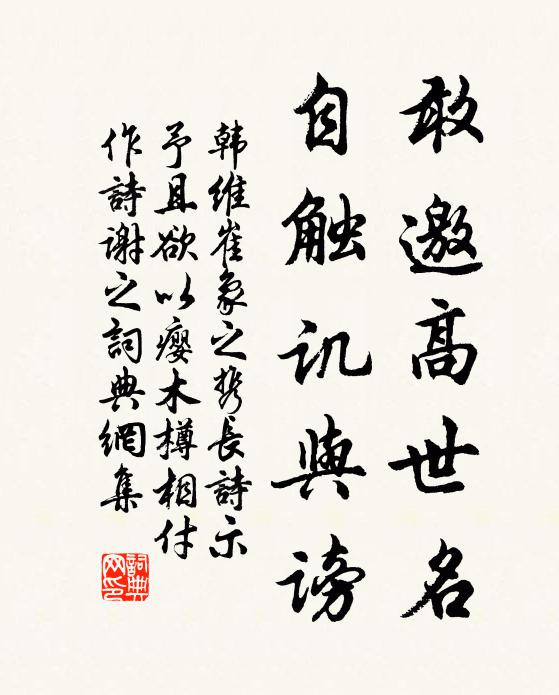 敢邀高世名
自触讥與谤
韩维崔象之携長詩示
予且欲以瘿木樽相付
作詩谢之词典網集
詞典
网印